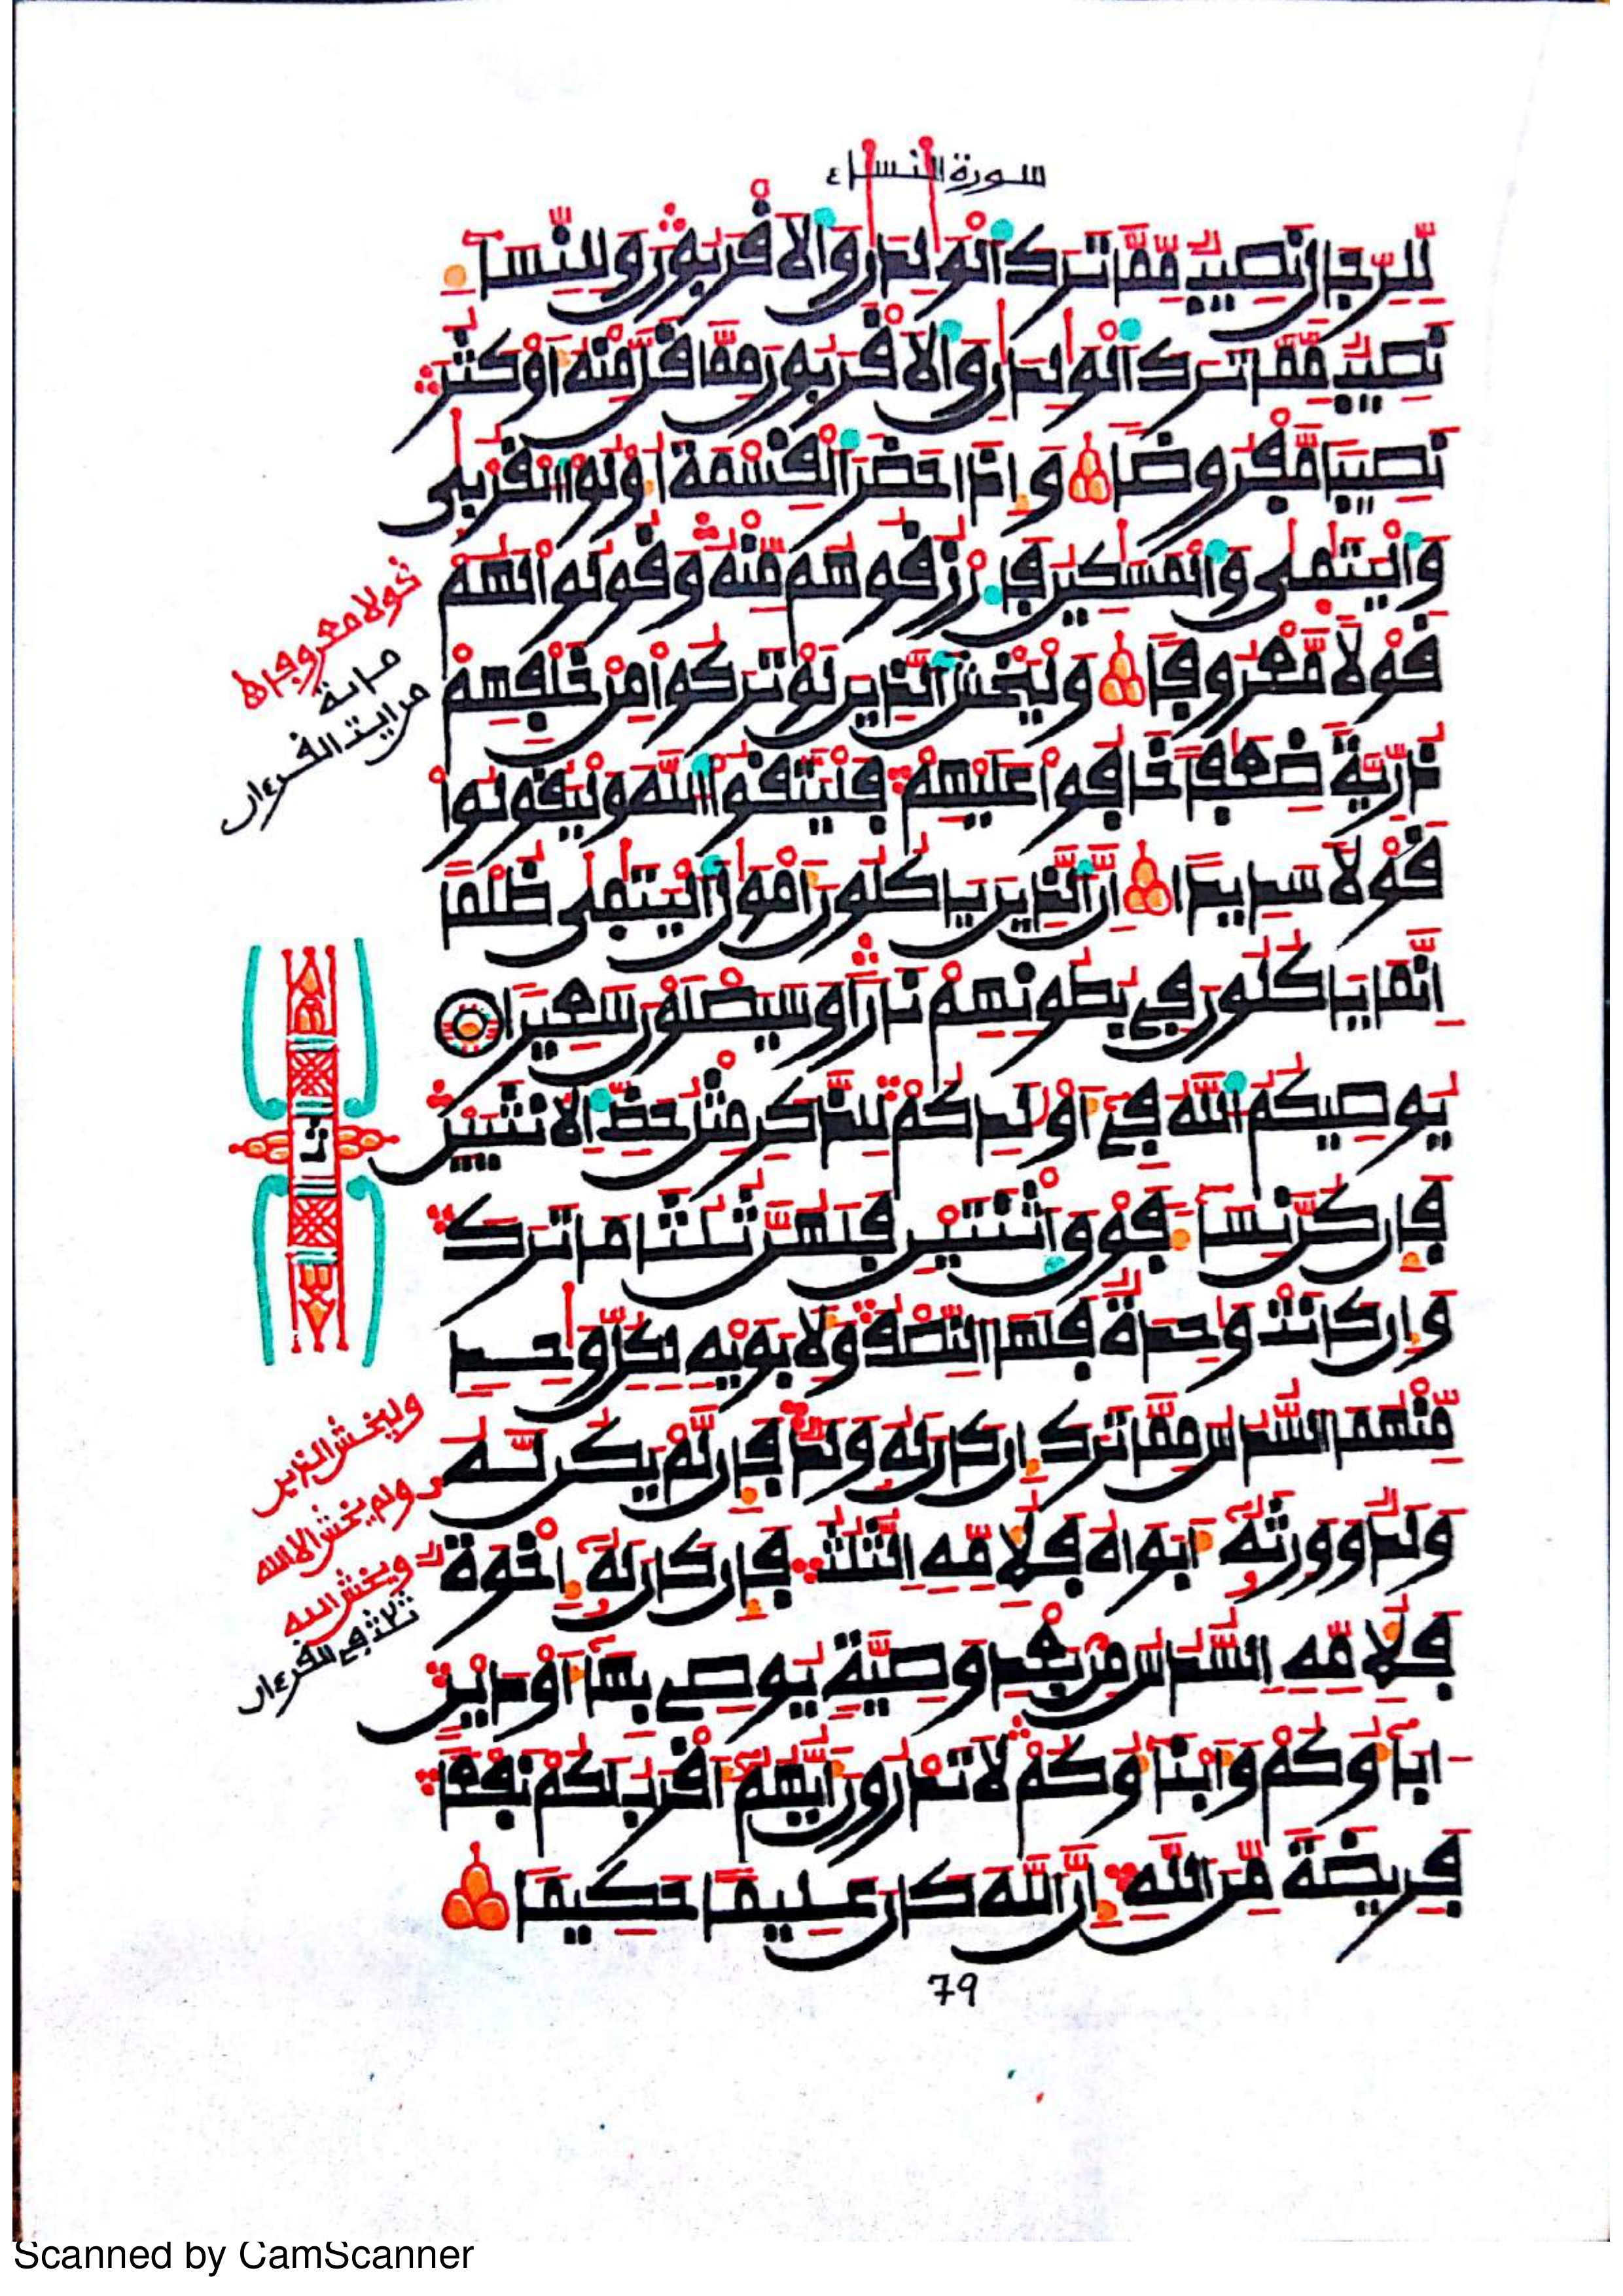 سورة النساء
لِّلرِّجَالِ نَصِيبٌ مِّمَّا تَرَكَ ٱلْوَٰلِدَٰنِ وَٱلَاقْرَبُونَ وَلِلنِّسَآءِ
نَصِيبٌ مِّمَّا تَرَكَ ٱلْوَٰلِدَٰنِ وَٱلَاقْرَبُونَ مِمَّا قَلَّ مِنْهُ أَوْ كَثُرَ
نَصِيبًا مَّفْرُوضًا وَإِذَا حَضَرَ ٱلْقِسْمَةَ أُوْلُواْ ٱلْقُرْبَىٰ
وَٱلْيَتَٰمَىٰ وَٱلْمَسَٰكِينُ فَٱرْزُقُوهُم مِّنْهُ وَقُولُواْ لَهُمْ
قَوْلًا مَّعْرُوفًا وَلْيَخْشَ ٱلذِينَ لَوْ تَرَكُواْ مِنْ خَلْفِهِمْ
ذُرِّيَّةً ضِعَٰفًا خَافُواْ عَلَيْهِمْ فَلْيَتَّقُواْ ٱللَّهَ وَلْيَقُولُواْ
قَوْلًا سَدِيدًا إِنَّ ٱلذِينَ يَاكُلُونَ أَمْوَٰلَ ٱلْيَتَٰمَىٰ ظُلْمًا
اِنَّمَا يَاكُلُونَ فِي بُطُونِهِمْ نَارًا وَسَيَصْلَوْنَ سَعِيرًا
يُوصِيكُمُ ٱللَّهُ فِے أَوْلَٰدِكُمْ لِلذَّكَرِ مِثْلُ حَظِّ ٱلُانثَيَيْنِ
فَإِن كُنَّ نِسَآءً فَوْقَ ٱثْنَتَيْنِ فَلَهُنَّ ثُلُثَا مَا تَرَكَ
وَإِن كَانَتْ وَٰحِدَةٌ فَلَهَا ٱلنِّصْفُ وَلَأبَوَيْهِ لِكُلِّ وَٰحِدٍ
مِّنْهُمَا ٱلسُّدُسُ مِمَّا تَرَكَ إِن كَانَ لَهُۥ وَلَدٌ فَإِن لَّمْ يَكُن لَّهُۥ
وَلَدٌ وَوَرِثَهُۥٓ أَبَوَٰهُ فَلِأُمِّهِ ٱلثُّلُثُ فَإِن كَانَ لَهُۥٓ إِخْوَةٌ
فَلِأُمِّهِ ٱلسُّدُسُ مِنۢ بَعْدِ وَصِيَّةٍ يُوصِے بِهَآ أَوْ دَيْنٍ
ءَابَآؤُكُمْ وَأَبْنَآؤُكُمْ لَا تَدْرُونَ أَيُّهُمُۥٓ أَقْرَبُ لَكُمْ نَفْعًا
فَرِيضَةً مِّنَ ٱللَّهِ إِنَّ ٱللَّهَ كَانَ عَلِيمًا حَكِيمًا
قولا معروفا
القرءان
وليخش الذين
ولم يخش الا الله
ويخش الله
ثلاث في القرءان
79
Scanned by CamScanner